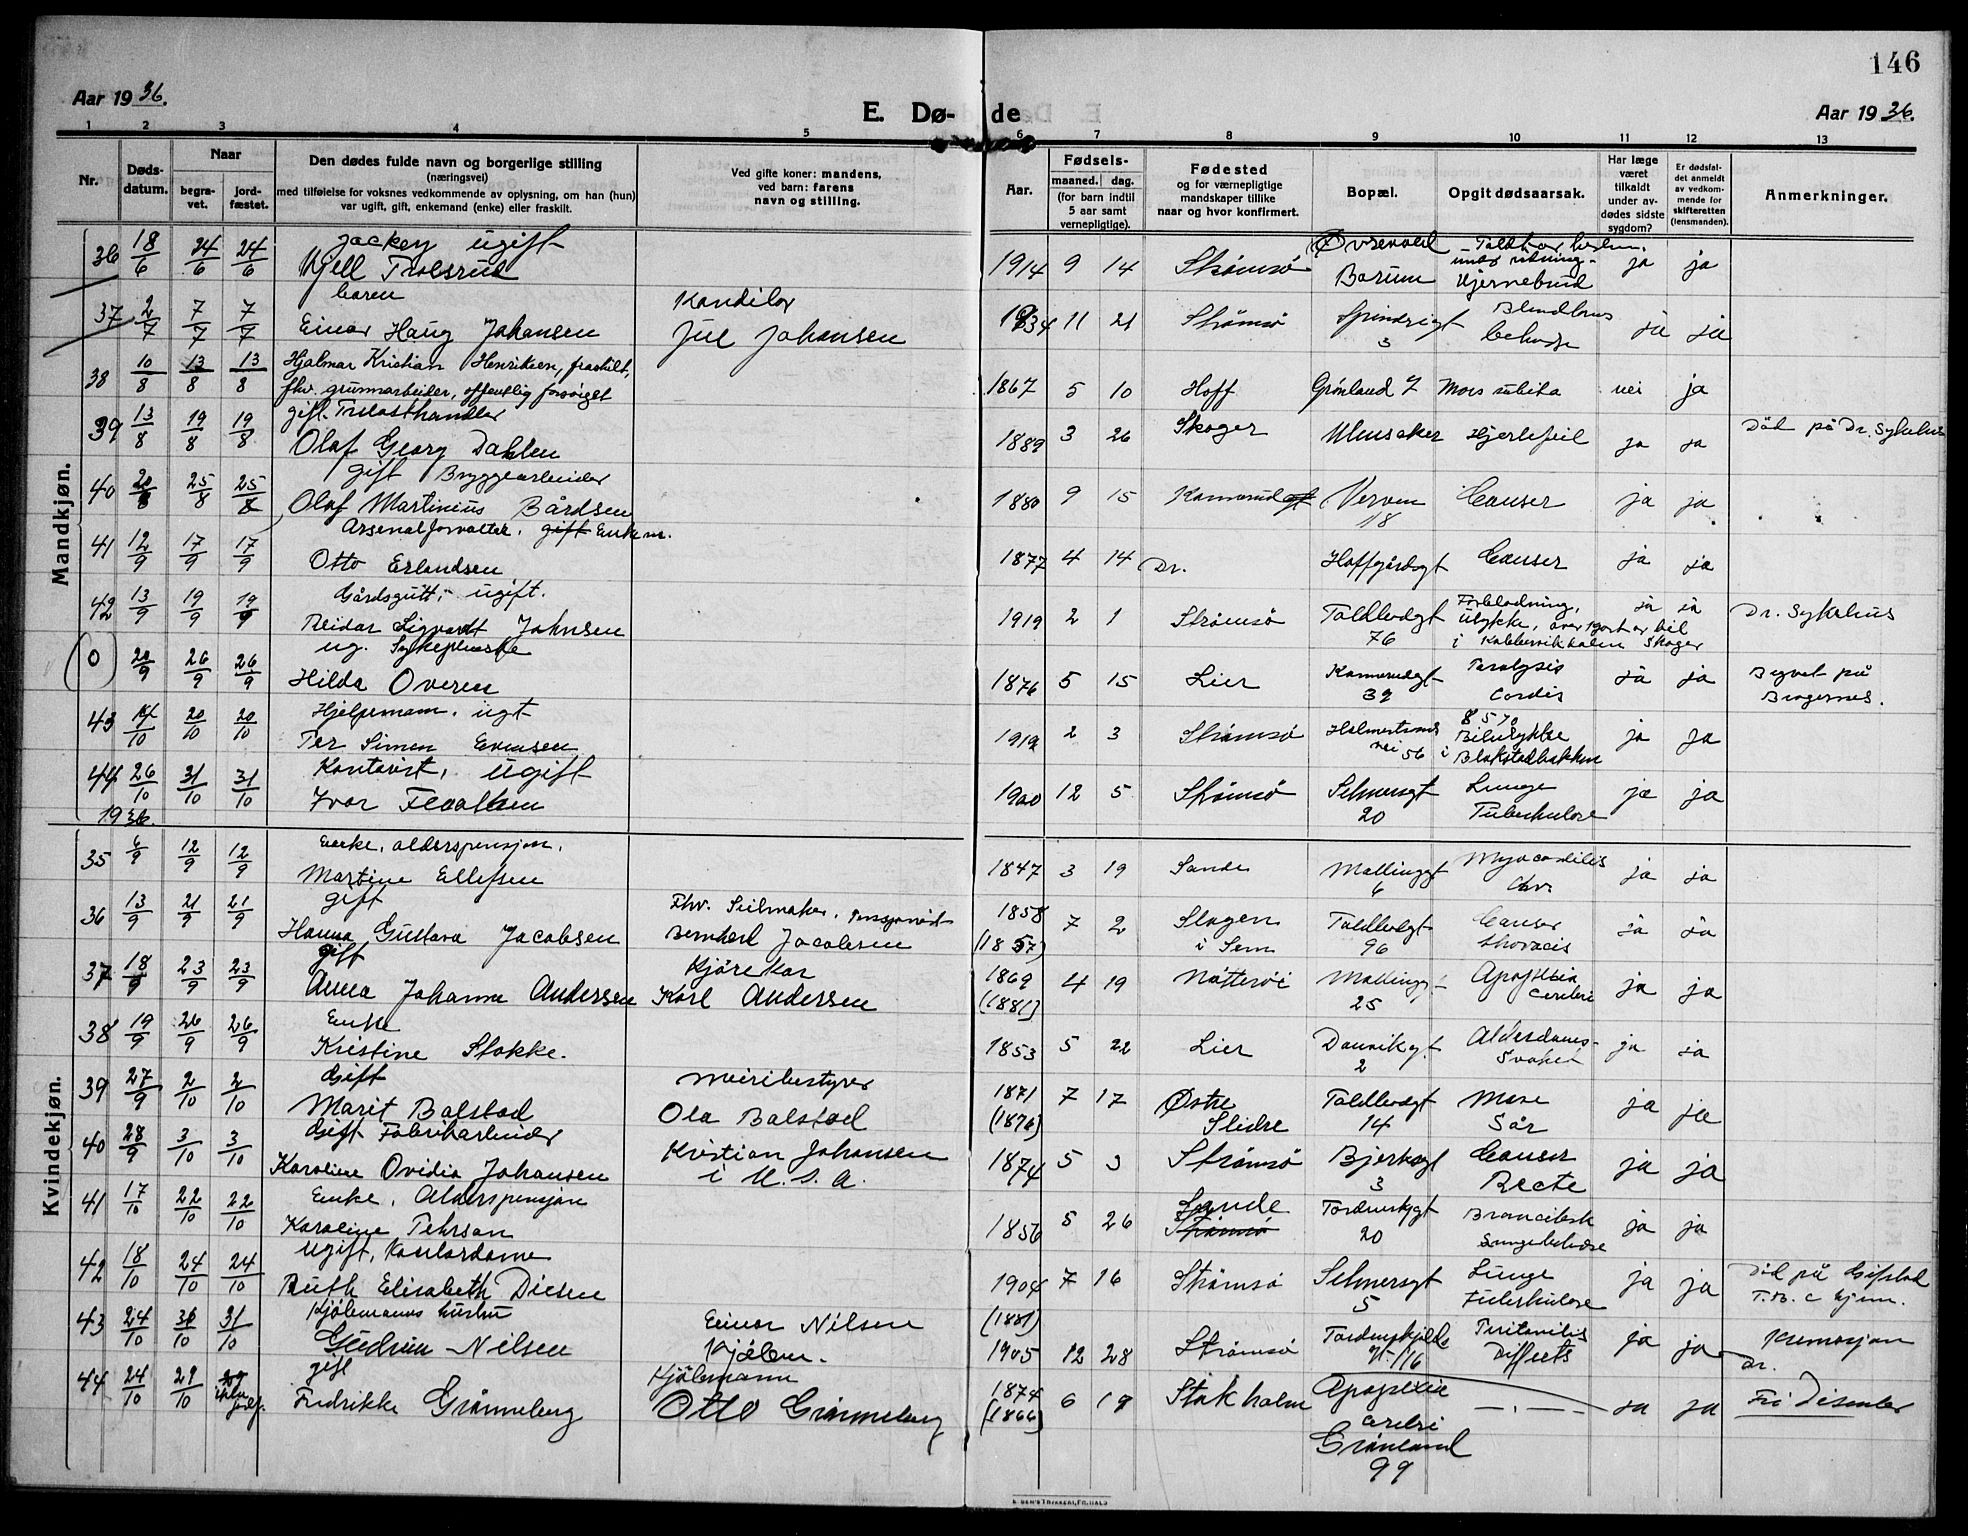 146
Aar 1936.
E. Dø-de
Aar 1936.
1 2 3 4 5 6 7 8 9 10 11 12 13
Nr.
Døds-datum.
Naar
begra-vet.
jord-fæstet.
Den dødes fulde navn og borgerlige stilling
(næringsvei)
med tilføielse for voksnes vedkommende av oplysning, om han (hun)
var ugift, gift, enkemand (enke) eller fraskilt.
Ved gifte koner: mandens,
ved barn: farens
navn og stilling.
Aar.
Fødsels-
maaned. dag.
(for barn indtil
5 aar samt
vernepligtige).
Fødested
og for værnepligtige
mandskaper tillike
naar og hvor konfirmert.
Bopæl.
Opgit dødsaarsak.
Har læge
været
tilkaldt
under av-
dødes sidste
sygdom?
Er dødsfal-
det anmeldt
av vedkom-
mende for
skifteretten
(lensmanden).
Anmerkninger.
Mandkjøn.
36 18/6 24/6 24/6 Jockey ugift
Kjell 1914 9 14 Strømsø Øvrevoll Bærum ja ja
37 2/7 7/7 7/7 barn
Einar Haug Johansen Jul Johansen 1934 11 21 Strømsø 3 ja ja
38 10/8 13/8 13/8 Hjalmar Kristian Henriksen, fraskilt,
fhv. grunnarbeider, offentlig forsørget 1867 5 10 Hoff Grønland 7 Mors subita nei ja
39 13/8 19/8 19/8 gift. Trelasthandler
Olaf Georg Dahlen 1889 3 26 Skoger Ullensaker Hjertefeil ja ja Død på Dr. Sykehus
40 20/8 25/8 25/8 gift Bryggearbeider
Olaf Martinius Bårdsen 1880 9 15 Verven 18 Cancer ja ja
41 12/9 17/9 17/9 Arsenalforvalter, gift Enkem.
Otto Erlandsen 1877 4 14 Dr. Hoffgårdsgt Cancer ja ja
42 13/9 19/9 19/9 Gårdsgutt, ugift.
Reidar Sigvardt Johnsen 1919 2 1 Strømsø Toldbodgt 76 Forblødning,
Ulykke, overkjørt av bil
i Kobbervikdalen Skoger ja ja Dr. Sykehus
(0) 20/9 26/9 26/9 ug. Sykepleierske
Hilda Overen 1876 5 15 Lier 39 Paralysis
Cordis ja ja Begravet på
Bragernes.
43 14/10 20/10 20/10 Hjelpemann, ugt
Per Simen Evensen 1919 2 3 Strømsø Holmestrands vei 56 Bilulykke
i Blakstadbakken ja ja
44 26/10 31/10 31/10 Kontorist, ugift
Ivar 1900 12 5 Strømsø Selmersgt 20 Lunge
Tuberkulose ja ja
1936.
Kvindekjøn.
35 6/9 12/9 12/9 Enke, alderspensjon.
Martine Ellefsen 1847 3 19 Sande Mallinggt 6 Myocarditis
chr. ja ja
36 13/9 21/9 21/9 gift
Hanna Gustava Jacobsen Fhv. Seilmaker, Pensjonist
Bernhard Jacobsen 1858
(1857) 7 2 Slagen
i Sem Toldbodgt 96 Cancer
thoracis ja ja
37 18/9 23/9 23/9 gift
Anna Johanne Andersen Kjørekar
Karl Andersen 1869
(1881) 4 19 Nøtterøi Mallinggt 25 Apoplexia
cerebri ja ja
38 19/9 26/9 26/9 Enke
Kristine Stokke. 1853 5 22 Lier Danvikgt 2 Alderdoms-
svakhet ja ja
39 27/9 2/10 2/10 Gift
Marit Balstad Meieribestyrer
Ola Balstad 1871
(1876) 7 17 Østre
Slidre Toldbodgt 14 Mave
Sår ja ja
40 28/9 3/10 3/10 Gift Fabrikarbeider
Karoline Ovidia Johansen Kristian Johansen
i U.S.A. 1874 5 3 Strømsø Bjerkegt 3 Cancer
Recte ja ja
41 17/10 22/10 22/10 Enke, Alderspensjon
Karoline Pehrson 1856 5 26 Sande
Strømsø Tordenskjgt 20 ja ja
42 18/10 24/10 24/10 ugift, Kontordame
Ruth Elisabeth Diesen 1904 7 16 Strømsø Selmersgt 5 Lunge
tuberkulose ja ja Død på
T.B.C hjem.
43 24/10 30/10 31/10 Kjølemanns hustru
Gudrun Nilsen Einar Nilsen
Kjølem. (1881)
1905 12 28 Strømsø Tordenskjolds gt. 116 Peritonitis
ja ja Kremasjon
Dr.
44 24/10 29/10 gift
Fredrikke Grønneberg Kjølemann
Otto Grønneberg 1874
(1866) 6 19 Stokholm Apoplexia
cerebri
Grønland
99 —"— ja ja Fri Disenter